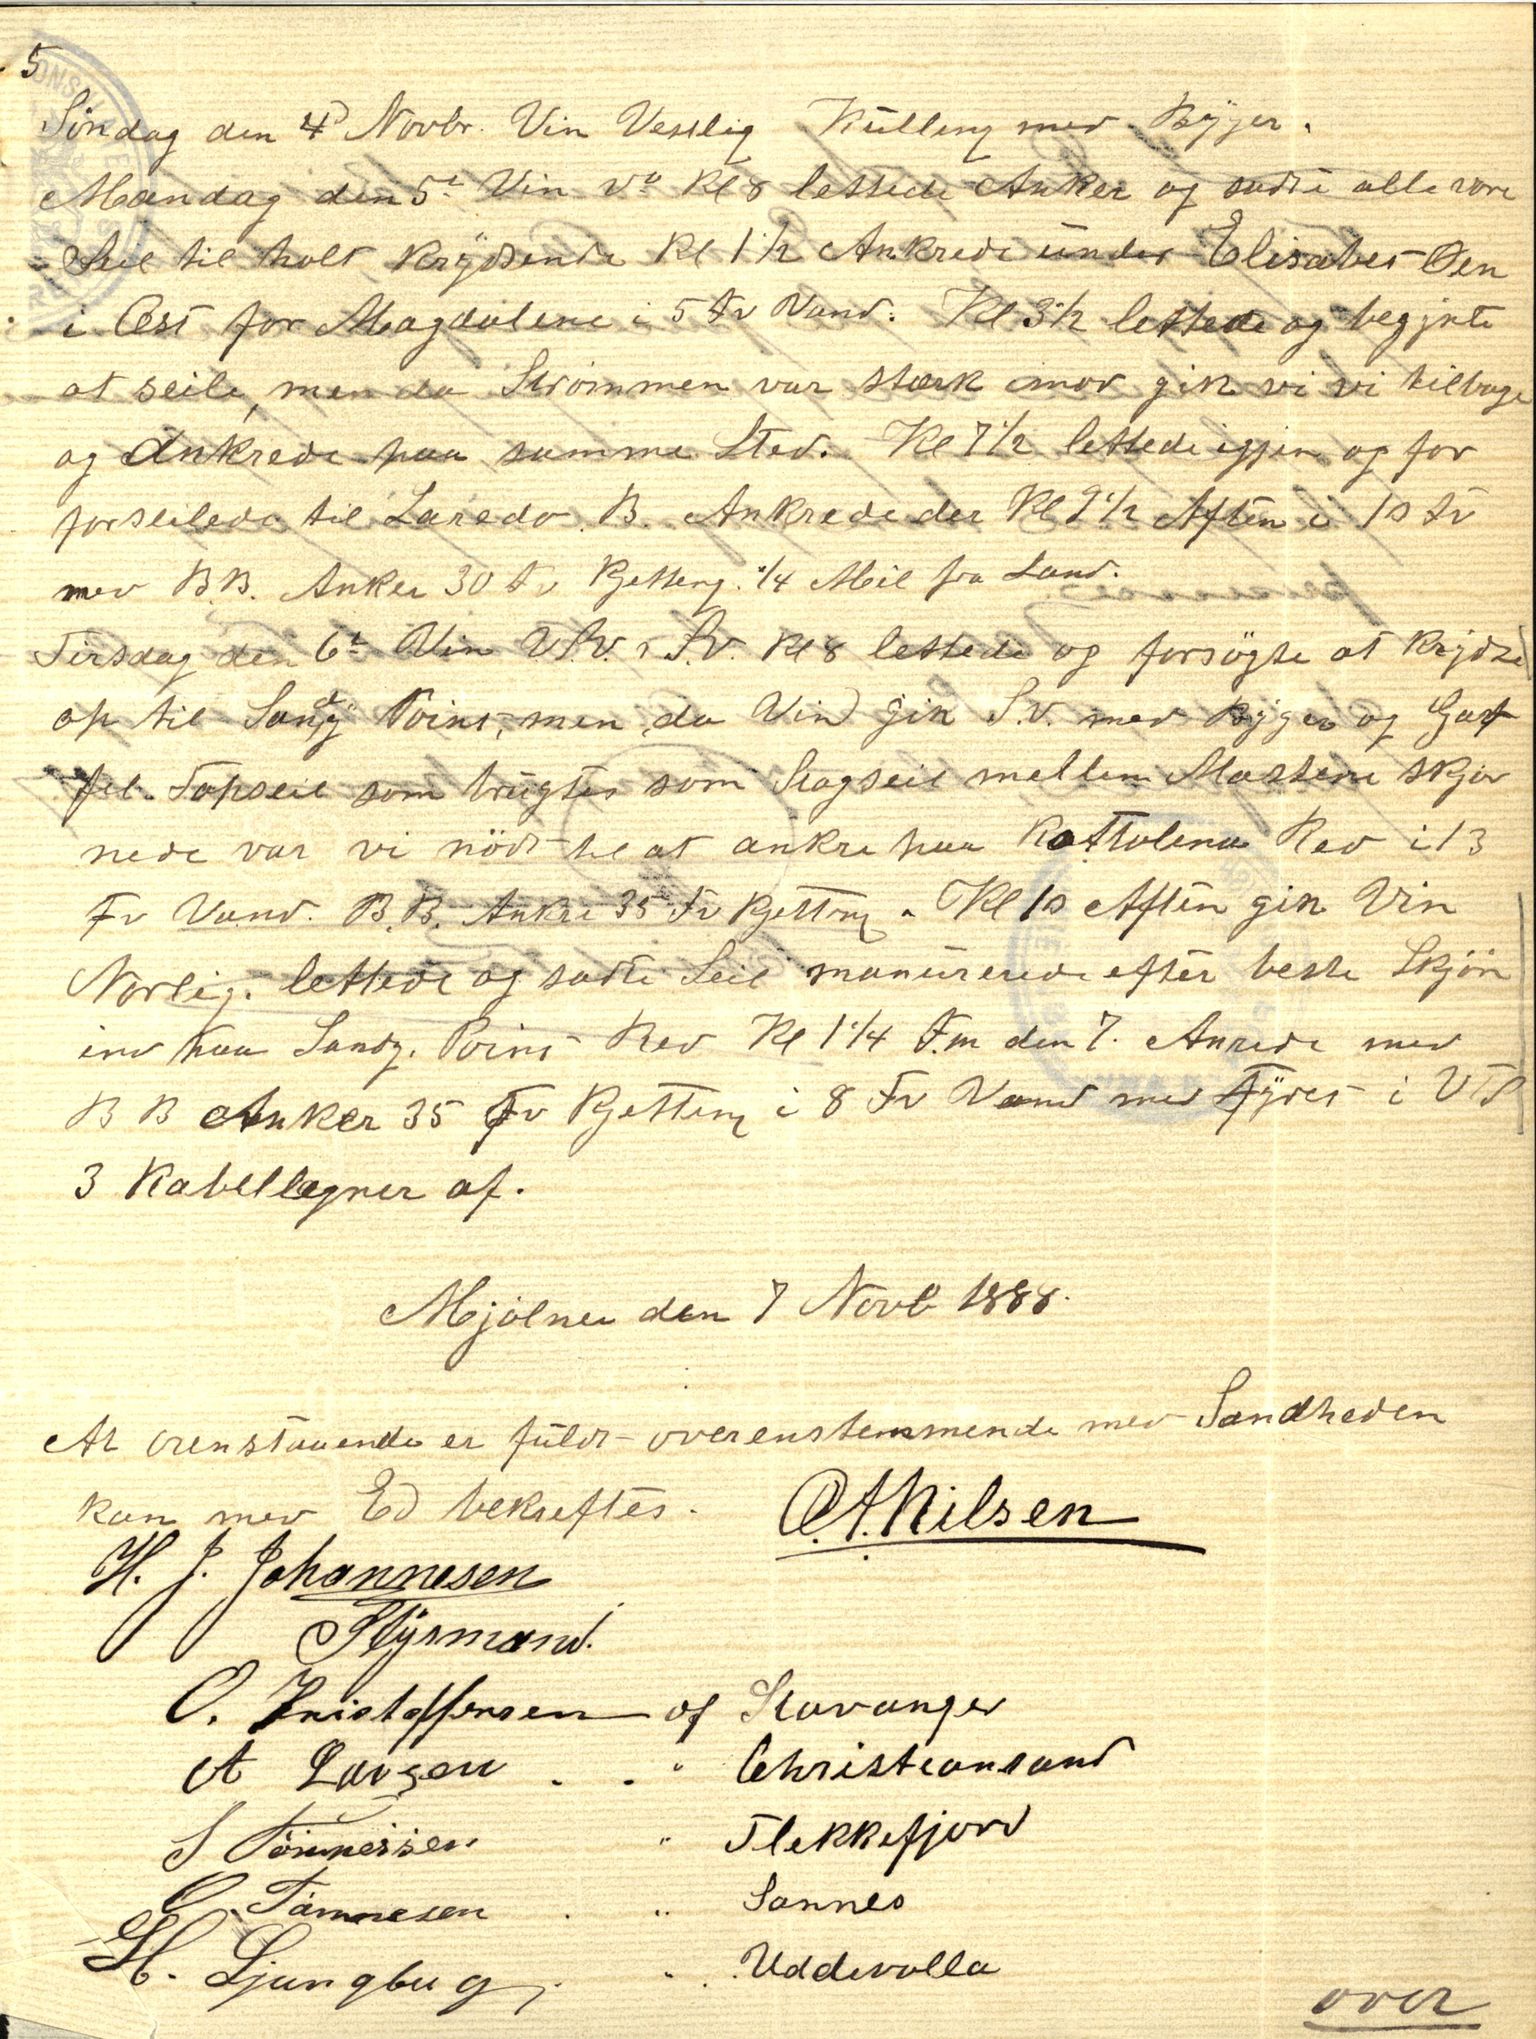 5
Söndag den 4d Novbr. Vin Vestlig Külling med Byger.
Mandag den 5t Vin Vo Kl 8 lettede Anker og sadte alle vore
Seil til holt krydsende Kl 1 1/2 Ankrede ünder Elisabet Öen
i Öst for Magdalene i 5 Fv Vand. Kl 3 1/2 lettede og begynte
at seile, men da Strömmen var stærk imod gik vi vi tilbage
og Ankrede paa samme Sted. Kl 7 1/2 lettede igjen og for
forseilede til Laredo B. Ankrede der Kl 9 1/2 Aften i 10 Fv
med B.B. Anker 30 Fv Kjetteng. 1/4 Mil fra Land.
Tirsdag den 6t Vin V.S.V. r S.V. Kl 8 lettede og forsögte at krydse
op til Sandy Point, men da Vind gik S.V. med Byger og Gaf
fel. Topseil som brügtes som Stagseil mellem Mastene skjör
nede var vi nödt til at ankre paa Kattolena Red i 13
Fv Vand. B.B. Ankre 35 Fv Kjetteng. Kl 10 Aften gik Vin
Norlig. lettede og sadte Seil manürerede efter beste Skjön
ind paa Sandy. Point Red Kl 1 1/4 F.m den 7. Anrede med
B B Anker 35 Fv Kjetteng i 8 Fv Vand med Fyret i VtS
3 Kabellægner af.
Mjölner den 7 Novb 1888.
At ovenstaaende er füldt overenstemmende med Sandheden
kan med Ed bekreftes.
O.A. Nilsen
H. J. Johannesen
Stÿrmand.
O. Kristoffersen af Stavanger
A Larsen . . " Christiansand
S Tönnessen " Flekkefjord
O. Tönnesen . " Sannes
H. Ljungbug . . Uddevalla
over